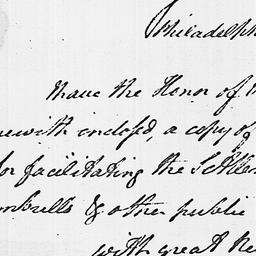 Philadelph
have the Honor of
ewith inclosed, a copy of
for facilitating the Settlem
& other public
with great Re